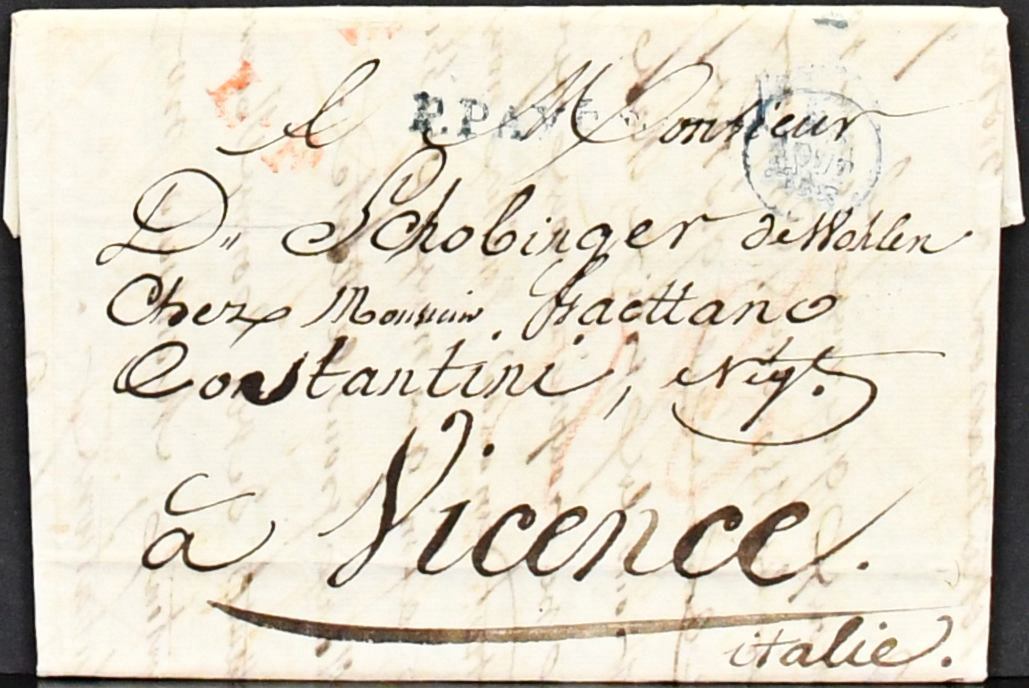 A Monsieur
D" Schobinger de Wohlen
Chez Monsieur Gaettano
Constantini, Nigt.
à Vicence.
italie.